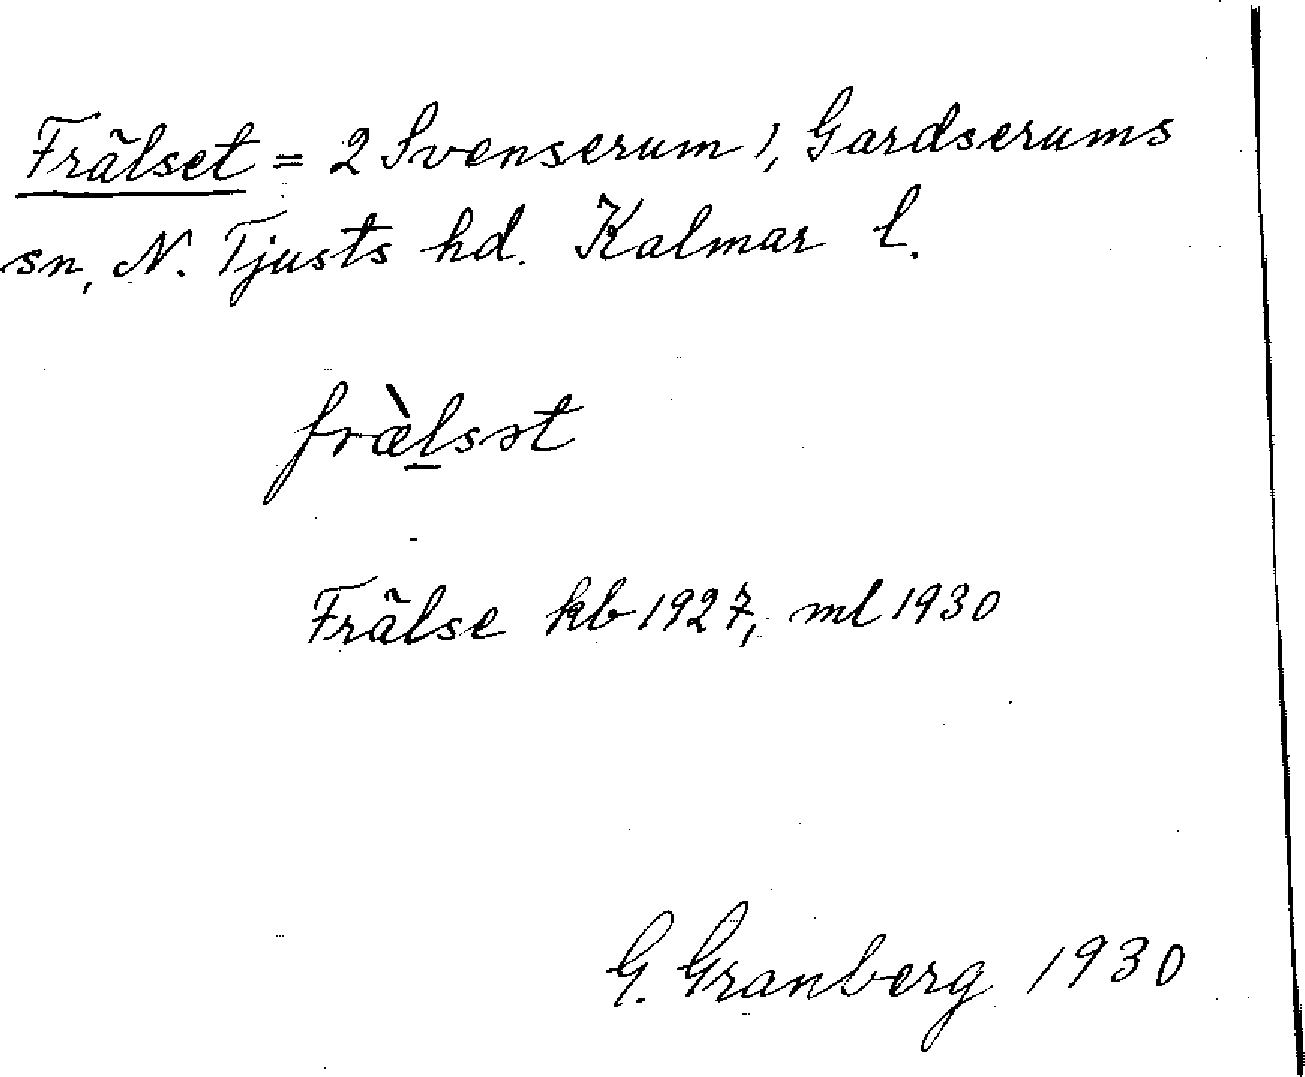 Frälset = 2 Svenserum 1, Gardserums
sn, N. Tjusts hd. Kalmar l.
fræ̀l̠sət
Frälse kb 1927, ml 1930
G. Granberg 1930